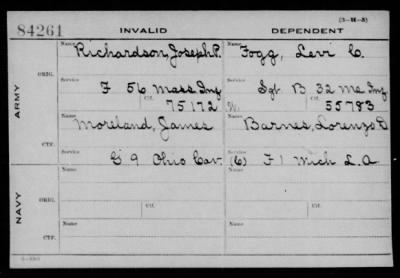 (3-H-3)
84261 INVALID DEPENDENT
Name Richardson, Joseph P. Name Fogg, Levi C.
ARMY
ORIG. Service F 56 Mass Inf Service Sgt B 32 Me Inf
Ctf. 75172 Ctf. 55783
Name Moreland, James Name Barnes, Lorenzo D
CTF. Service G 9 Ohio Cav. Service (C) F 1 Mich L.A
NAVY
Name Name
ORIG. Ctf. Ctf.
Name Name
CTF.